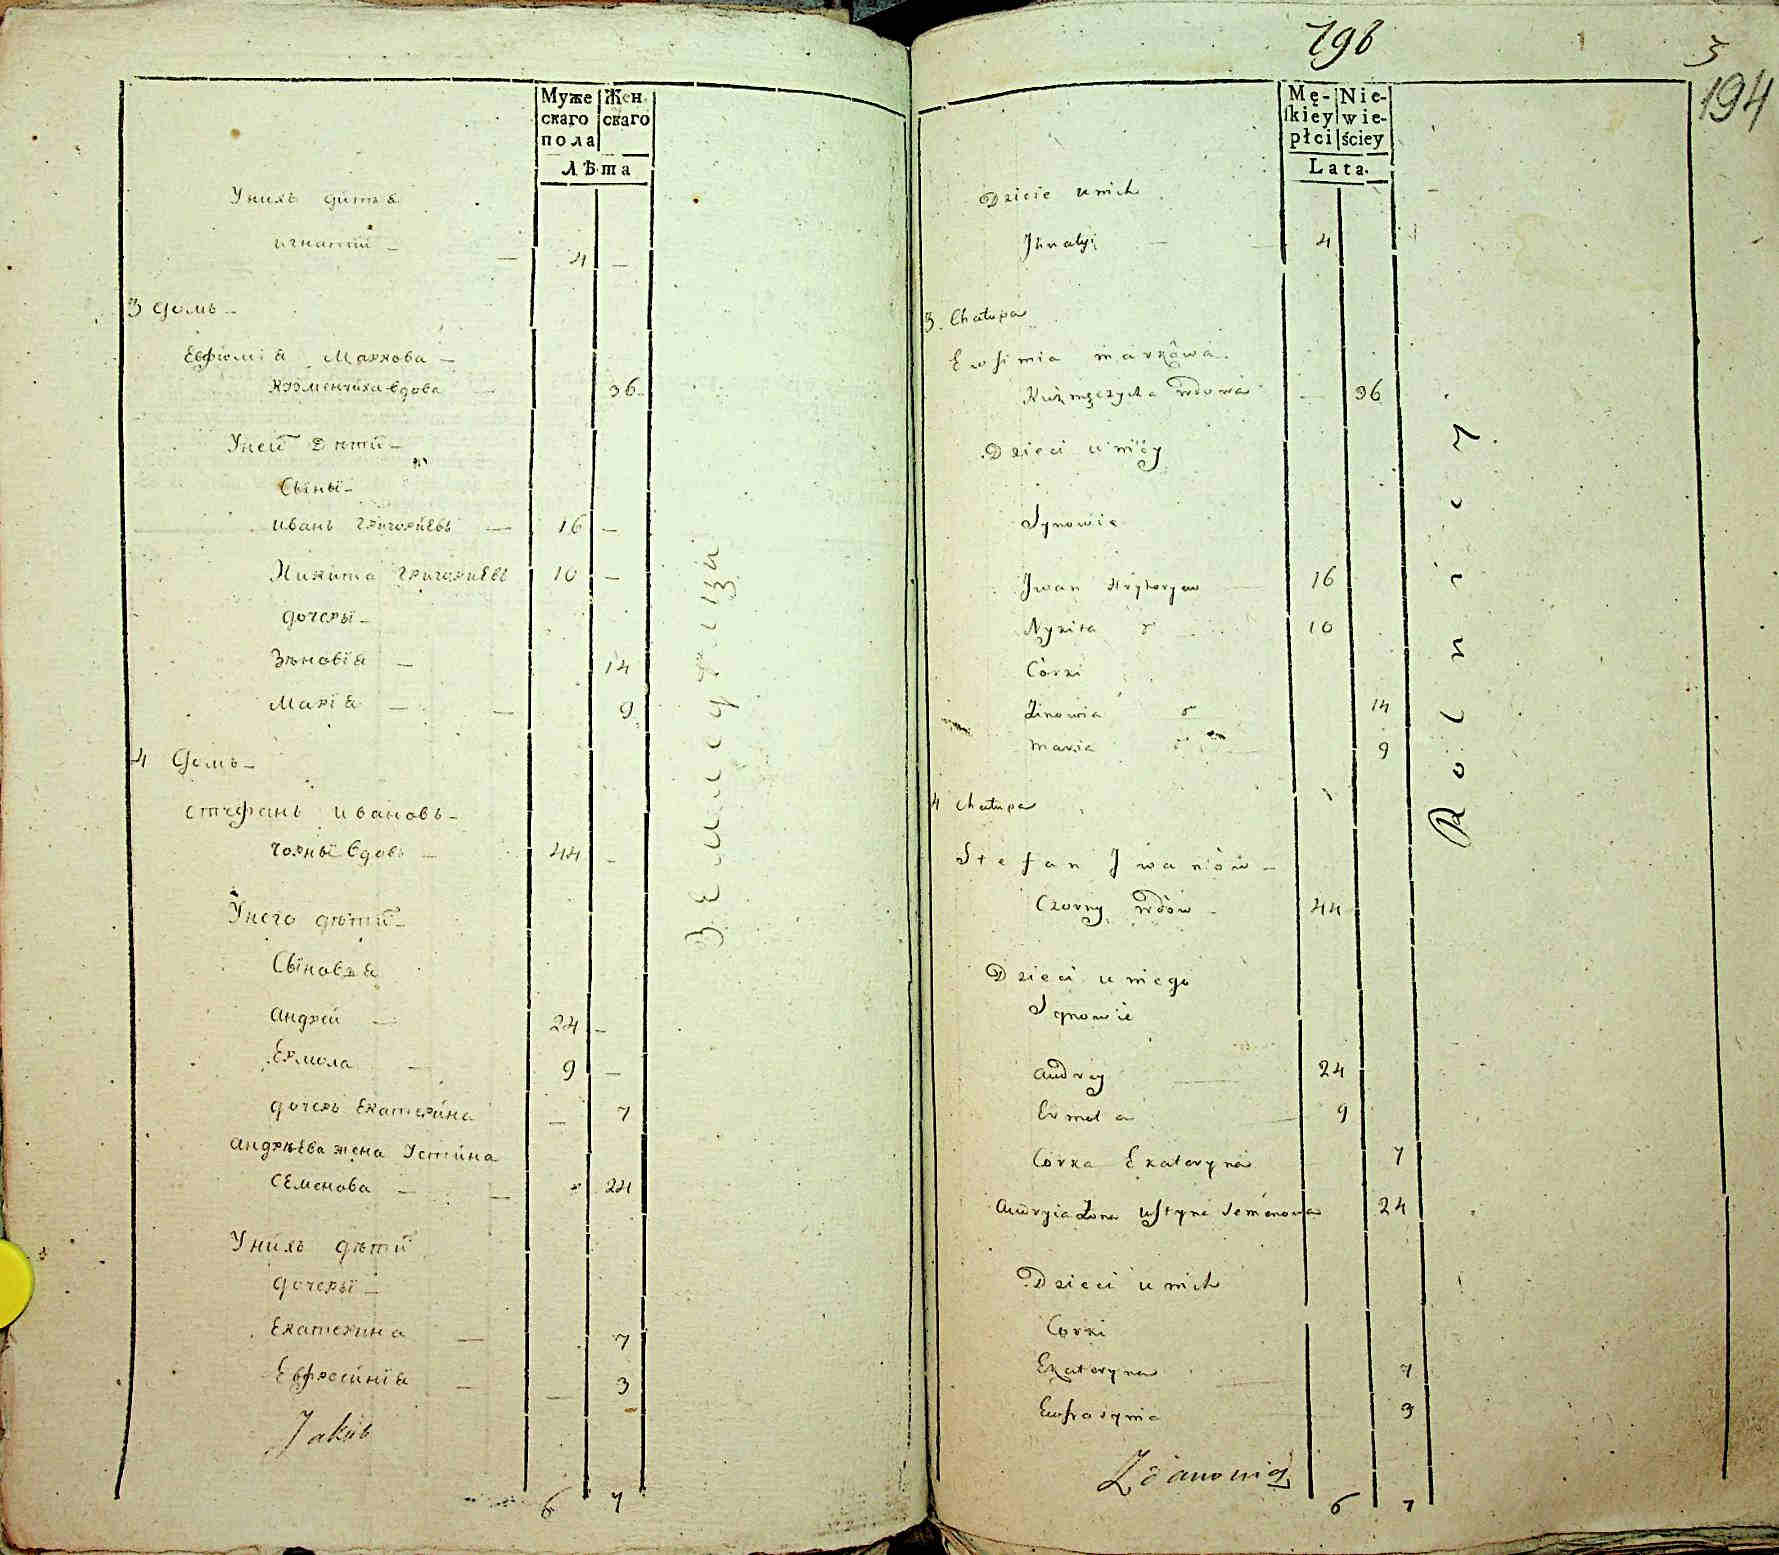 Муже Жен
скаго скаго
пола
Лѣта
Унихъ дитя
игнатій — 4 —
3 домъ —
Евфимія Маркова —
Кузменчиха вдова — 36
Уней Дѣти —
Сыны —
иванъ григориевъ — 16 —
Никита григориевъ 10 —
дочеры —
Зѣновія — 14
Марія — — 9
4 домъ —
стефанъ ивановъ —
чорный вдовъ — 44 —
Унего дѣти —
Сыновя
андрей — 24 —
Ермола — 9 —
дочерь Екатерина — 7
андрѣева жена Устина
Семенова — — 24
Унихъ дѣти
дочеры —
Екатерина — 7
Евфросинія — — 3
Jakub
6 7
Земледелци
796
3
194
Mę- Nie-
skiey wie-
płci ściey
Lata.
Dzicie u nich
Jhnatyi — 4
3. Chałupa
Ewfimia markowa.
Kuzmęczycha wdowa — 36
Dzieci u niey
Synowie
Jwan Hryhoryew — 16
Nykita 10
Córki
Zinowia 14
maria 9
4 chałupa
Stefan Jwanów —
Czorny wdów — 44
Dzieci u niego
Synowie
andrey — 24
Ermoła — 9
Corka Ekateryna 7
andryia Zona ustyna Semenowa 24
Dzieci u nich
Corki
Ekateryna 7
Eufrosynia 3
Zdanowicz
6 7
Rolnicy